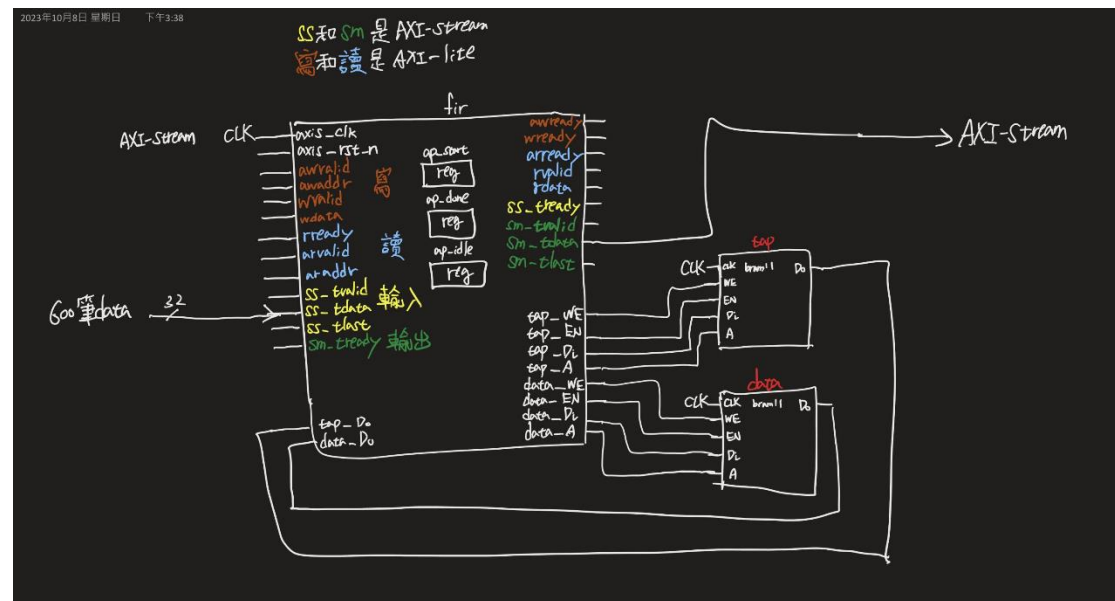 2023年10月8日 星期日 下午3:38
ss和sm是 AXI-stream
寫和讀是 AXI-lite
fir
AXI-stream CLK
axis_clk
axis_rst_n
awvalid
awaddr
wvalid
wdata
寫
rready
arvalid
araddr
讀
ss_tvalid
ss_tdata
ss_tlast
輸入
sm_tready 輸出
600筆data
32
tap_Do
data_Do
ap_start
reg
ap_done
reg
ap_idle
reg
awready
wready
arready
rvalid
rdata
ss_tready
sm_tvalid
sm_tdata
sm_tlast
tap_WE
tap_EN
tap_Di
tap_A
data_WE
data_EN
data_Di
data_A
AXI-stream
tap
CLK
clk bram11 Do
WE
EN
Di
A
data
CLK
CLK bram11 Do
WE
EN
Di
A